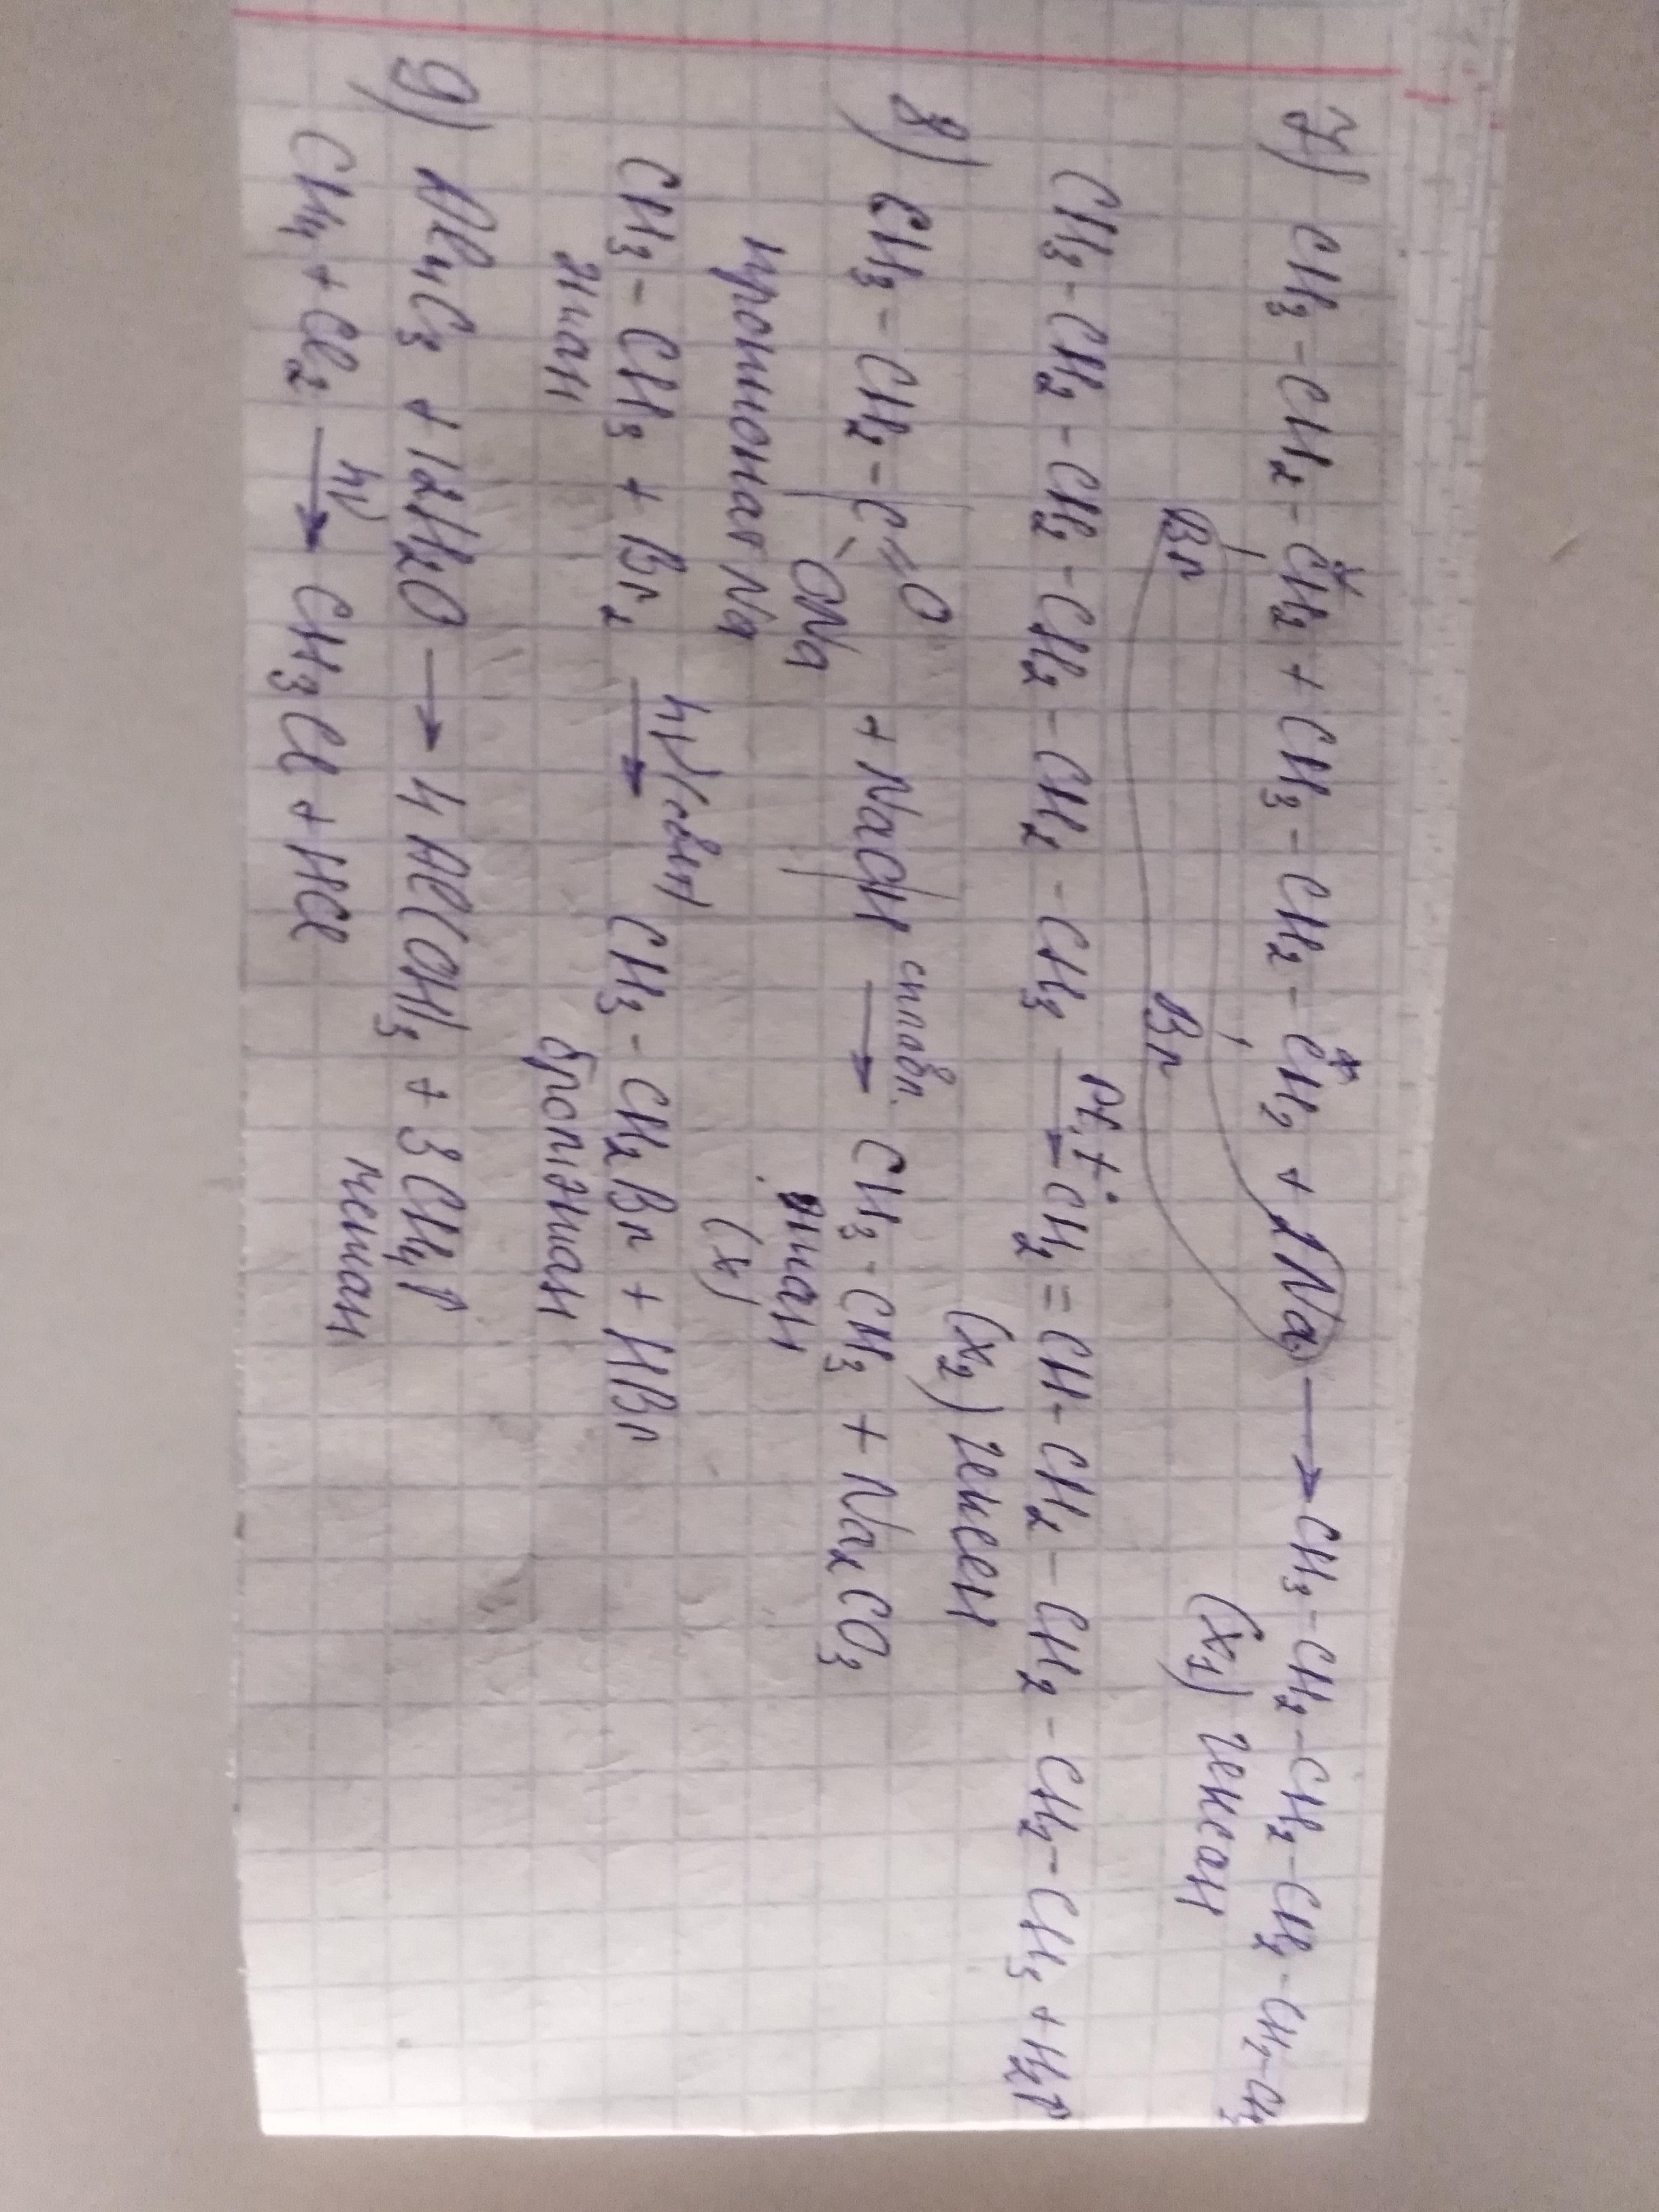 7) CH3-CH2-CH2 + CH3-CH2-CH2 + 2Na → CH3-CH2-CH2-CH2-CH2-CH3
Br Br (x1) гексан
CH3-CH2-CH2-CH2-CH2-CH3 Pt, t° → CH2=CH-CH2-CH2-CH2-CH3 + H2↑
(x2) гексен
8) CH3-CH2-C=O + NaOH сплавл. → CH3-CH3 + Na2CO3
ONa этан
пропионат Na (x)
CH3-CH3 + Br2 hν(свет) → CH3-CH2Br + HBr
этан бромэтан
9) Al4C3 + 12H2O → 4Al(OH)3 + 3CH4↑
метан
CH4 + Cl2 hν → CH3Cl + HCl